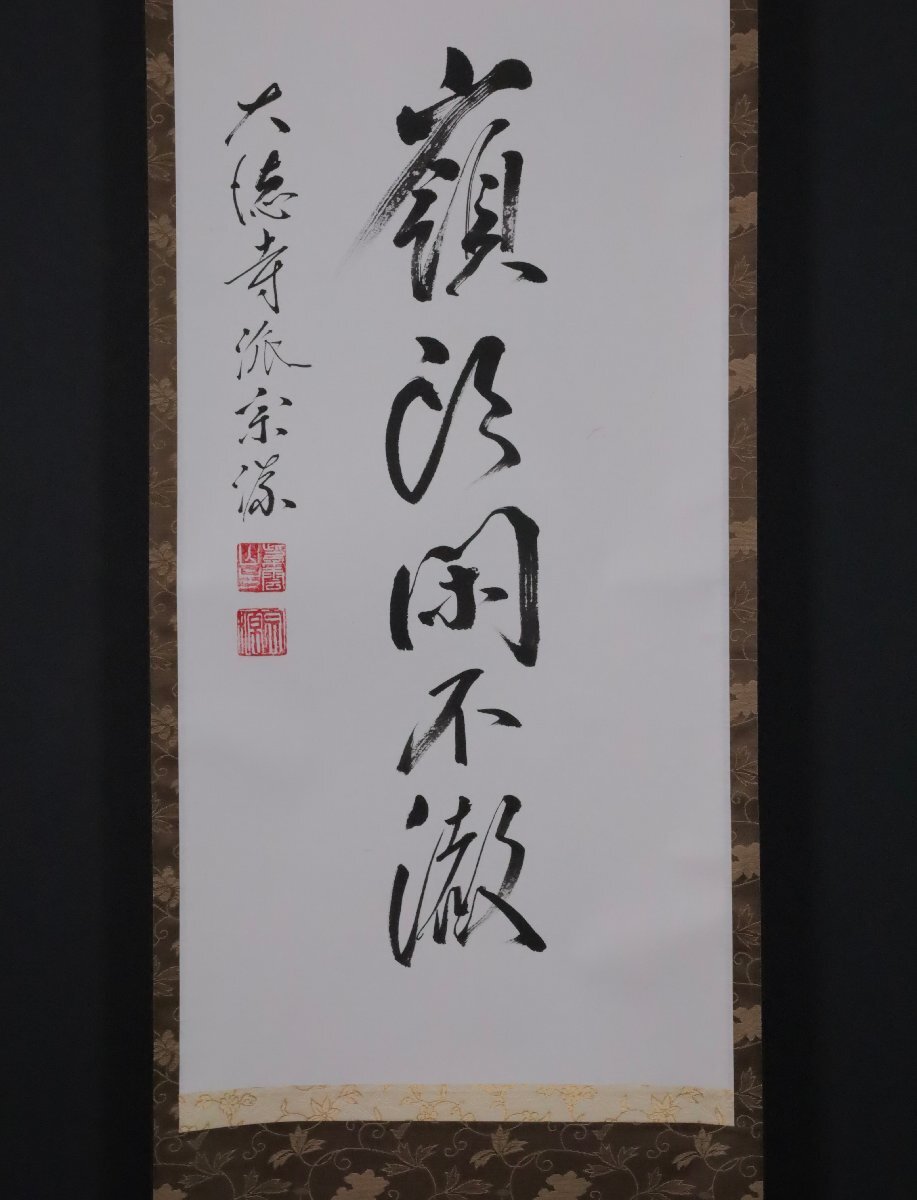 嶺頭閑不徹
大徳寺派宗源
宗源